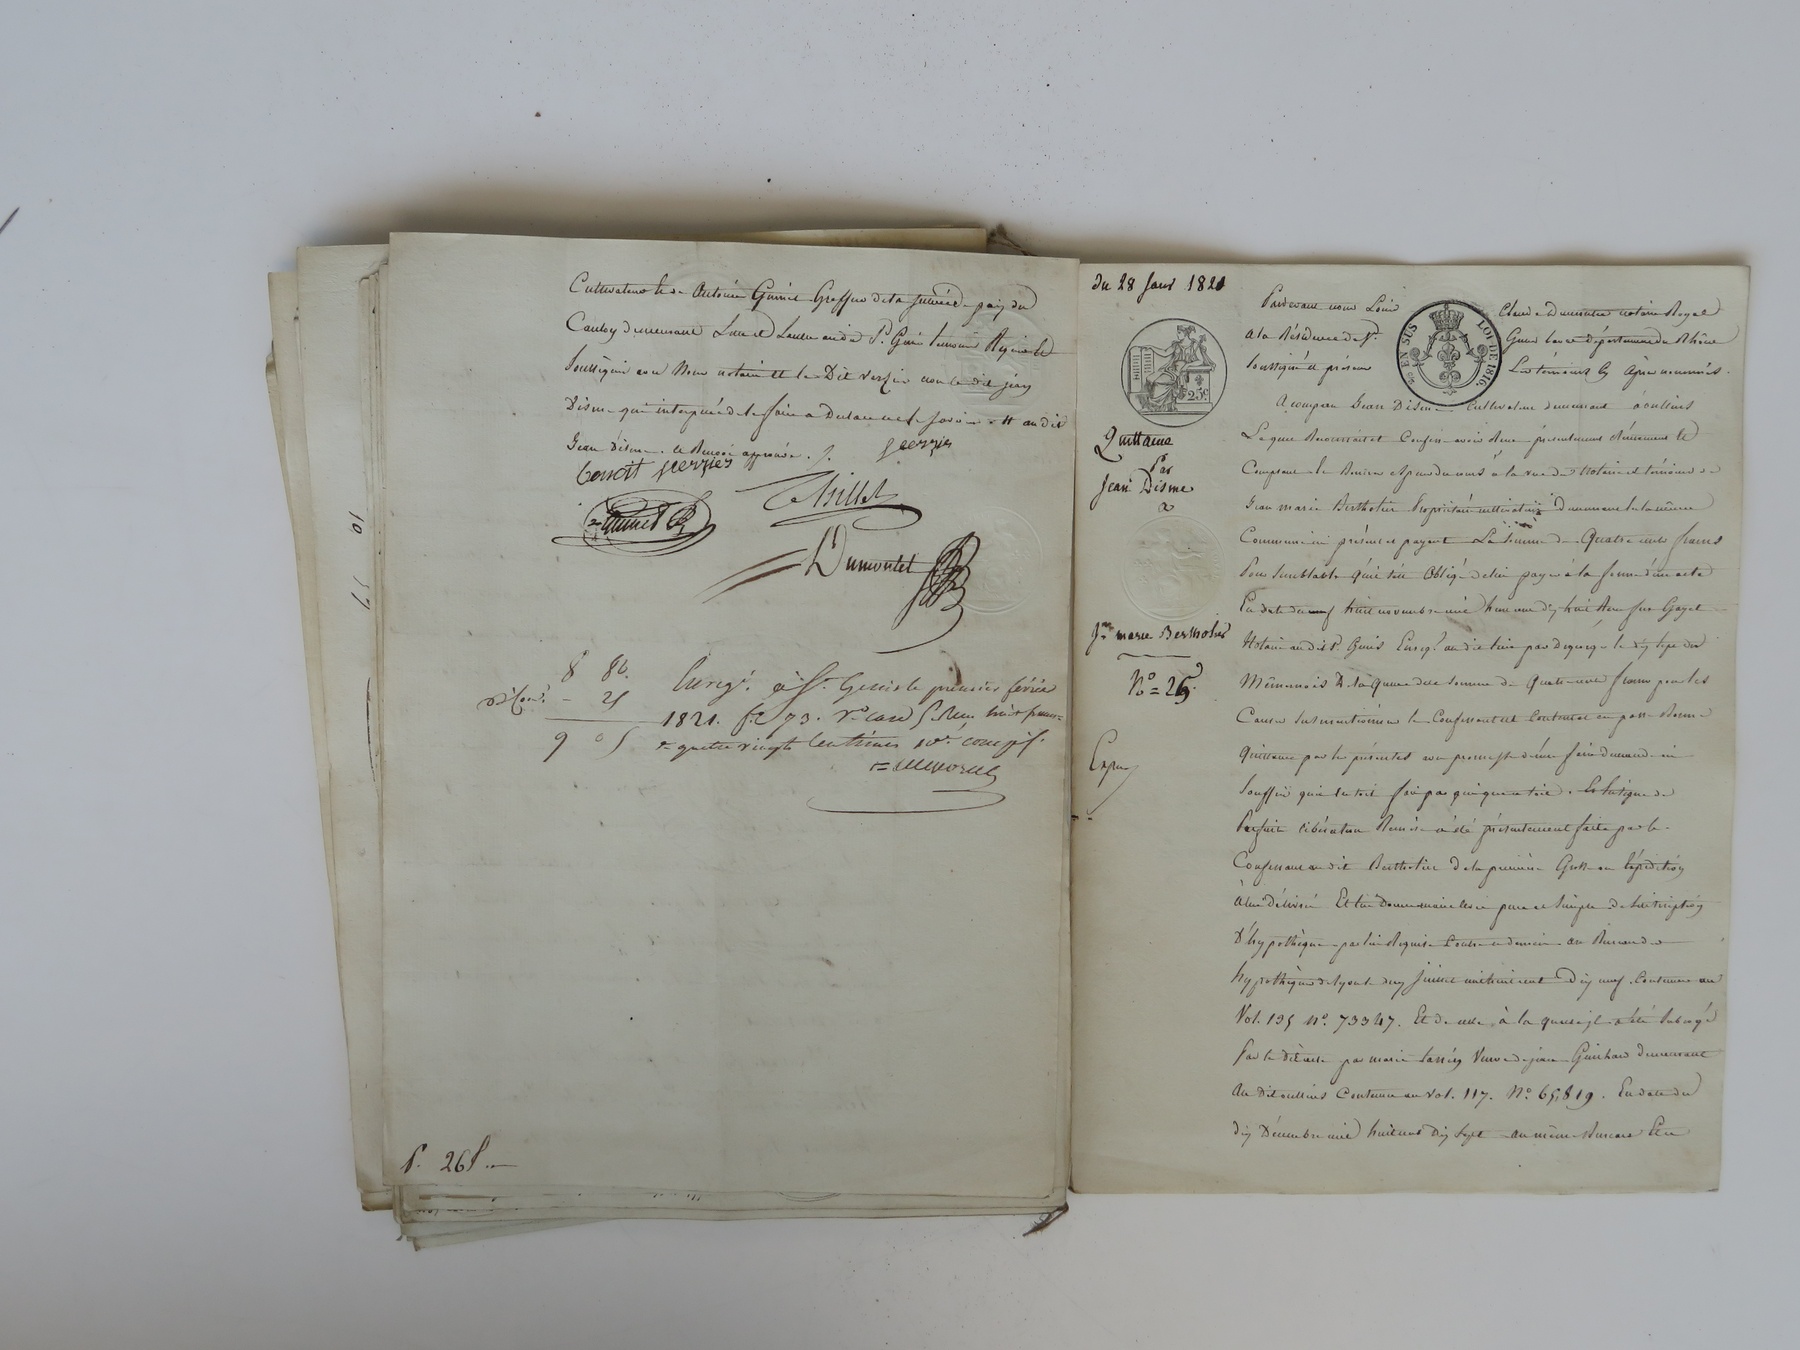 Cultivateur et de Antoine Guinet Greffier de la justice de paix du
Canton demeurant L'un et L'autre audit St. Genis temoins Requis et
Soussignés avec Nous notaire et le Dit Verzier non le dit jean
Disme qui interpellé de le faire a Declaré ne le Savoir. # au dit
Jean Disme. le Renvoi approuvé.
Benoit verzier verzier
Thillet
Guinet
Dumortet
8 80.
- 25
9 05
Enregé. à St. Genis le premier février
1821. fo 73. Vo case 5. Reçu huit francs
quatre vingts centimes Don. compris.
P. 26 f.
du 28 Janv 1821
Quittance
Par
Jean Disme
a
Jn. marie Bertholier
No = 26.
Exped
EN SUS LOI DE 1816.
25c
Pardevant nous Louis Claude Dumortet notaire Royal
a la Résidence de St. Genis Laval Département du Rhône
Soussigné et présens Les témoins cy Après nommés.
A comparu Jean Disme Cultivateur demeurant à oullins
Lequel Reconnait et Confesse avoir Reçu présentement Réellement et
Comptant à la vue des Notaire et témoins de
Jean marie Bertholier Propriétaire cultivateur Demeurant en la même
Commune ici présent et payant La Somme de Quatre cents francs
Pour Semblable qu'il s'étoit Obligé de lui payer à la forme d'un acte
En date du huit novembre mil huit cent dix huit Reçu Me Gayet
Notaire audit St. Genis Enregé. au dit lieu par le dix sept du
Même mois De la quelle dite Somme de Quatre cents francs pour les
Causes Susmentionnées le Confessant est Content et en passe Bonne
quittance par les présentes avec promesse de n'en faire demande ni
Souffrir qu'il en soit fait par qui que ce soit. En Signe de
Parfaite libération Remise a été présentement faite par le
Confessant au dit Bertholier de la première Grosse ou Expédition
à lui Délivrée Et lui Donne mainlevée pure et Simple de l'inscription
D'hypothèque par lui Requise contre ce dernier au Bureau des
hypothèques de lyon le Juillet mil huit cent Dix neuf. Contenue au
Vol. 135 No. 73347. Et de celle, à la quelle il a été Subrogé
Par le dit acte par marie Veuve de jean Guichard demeurant
Au Dit oullins Contenue au vol. 117. No. 65,819. En date du
dix Décembre mil huit cent Dix Sept au même Bureau Et